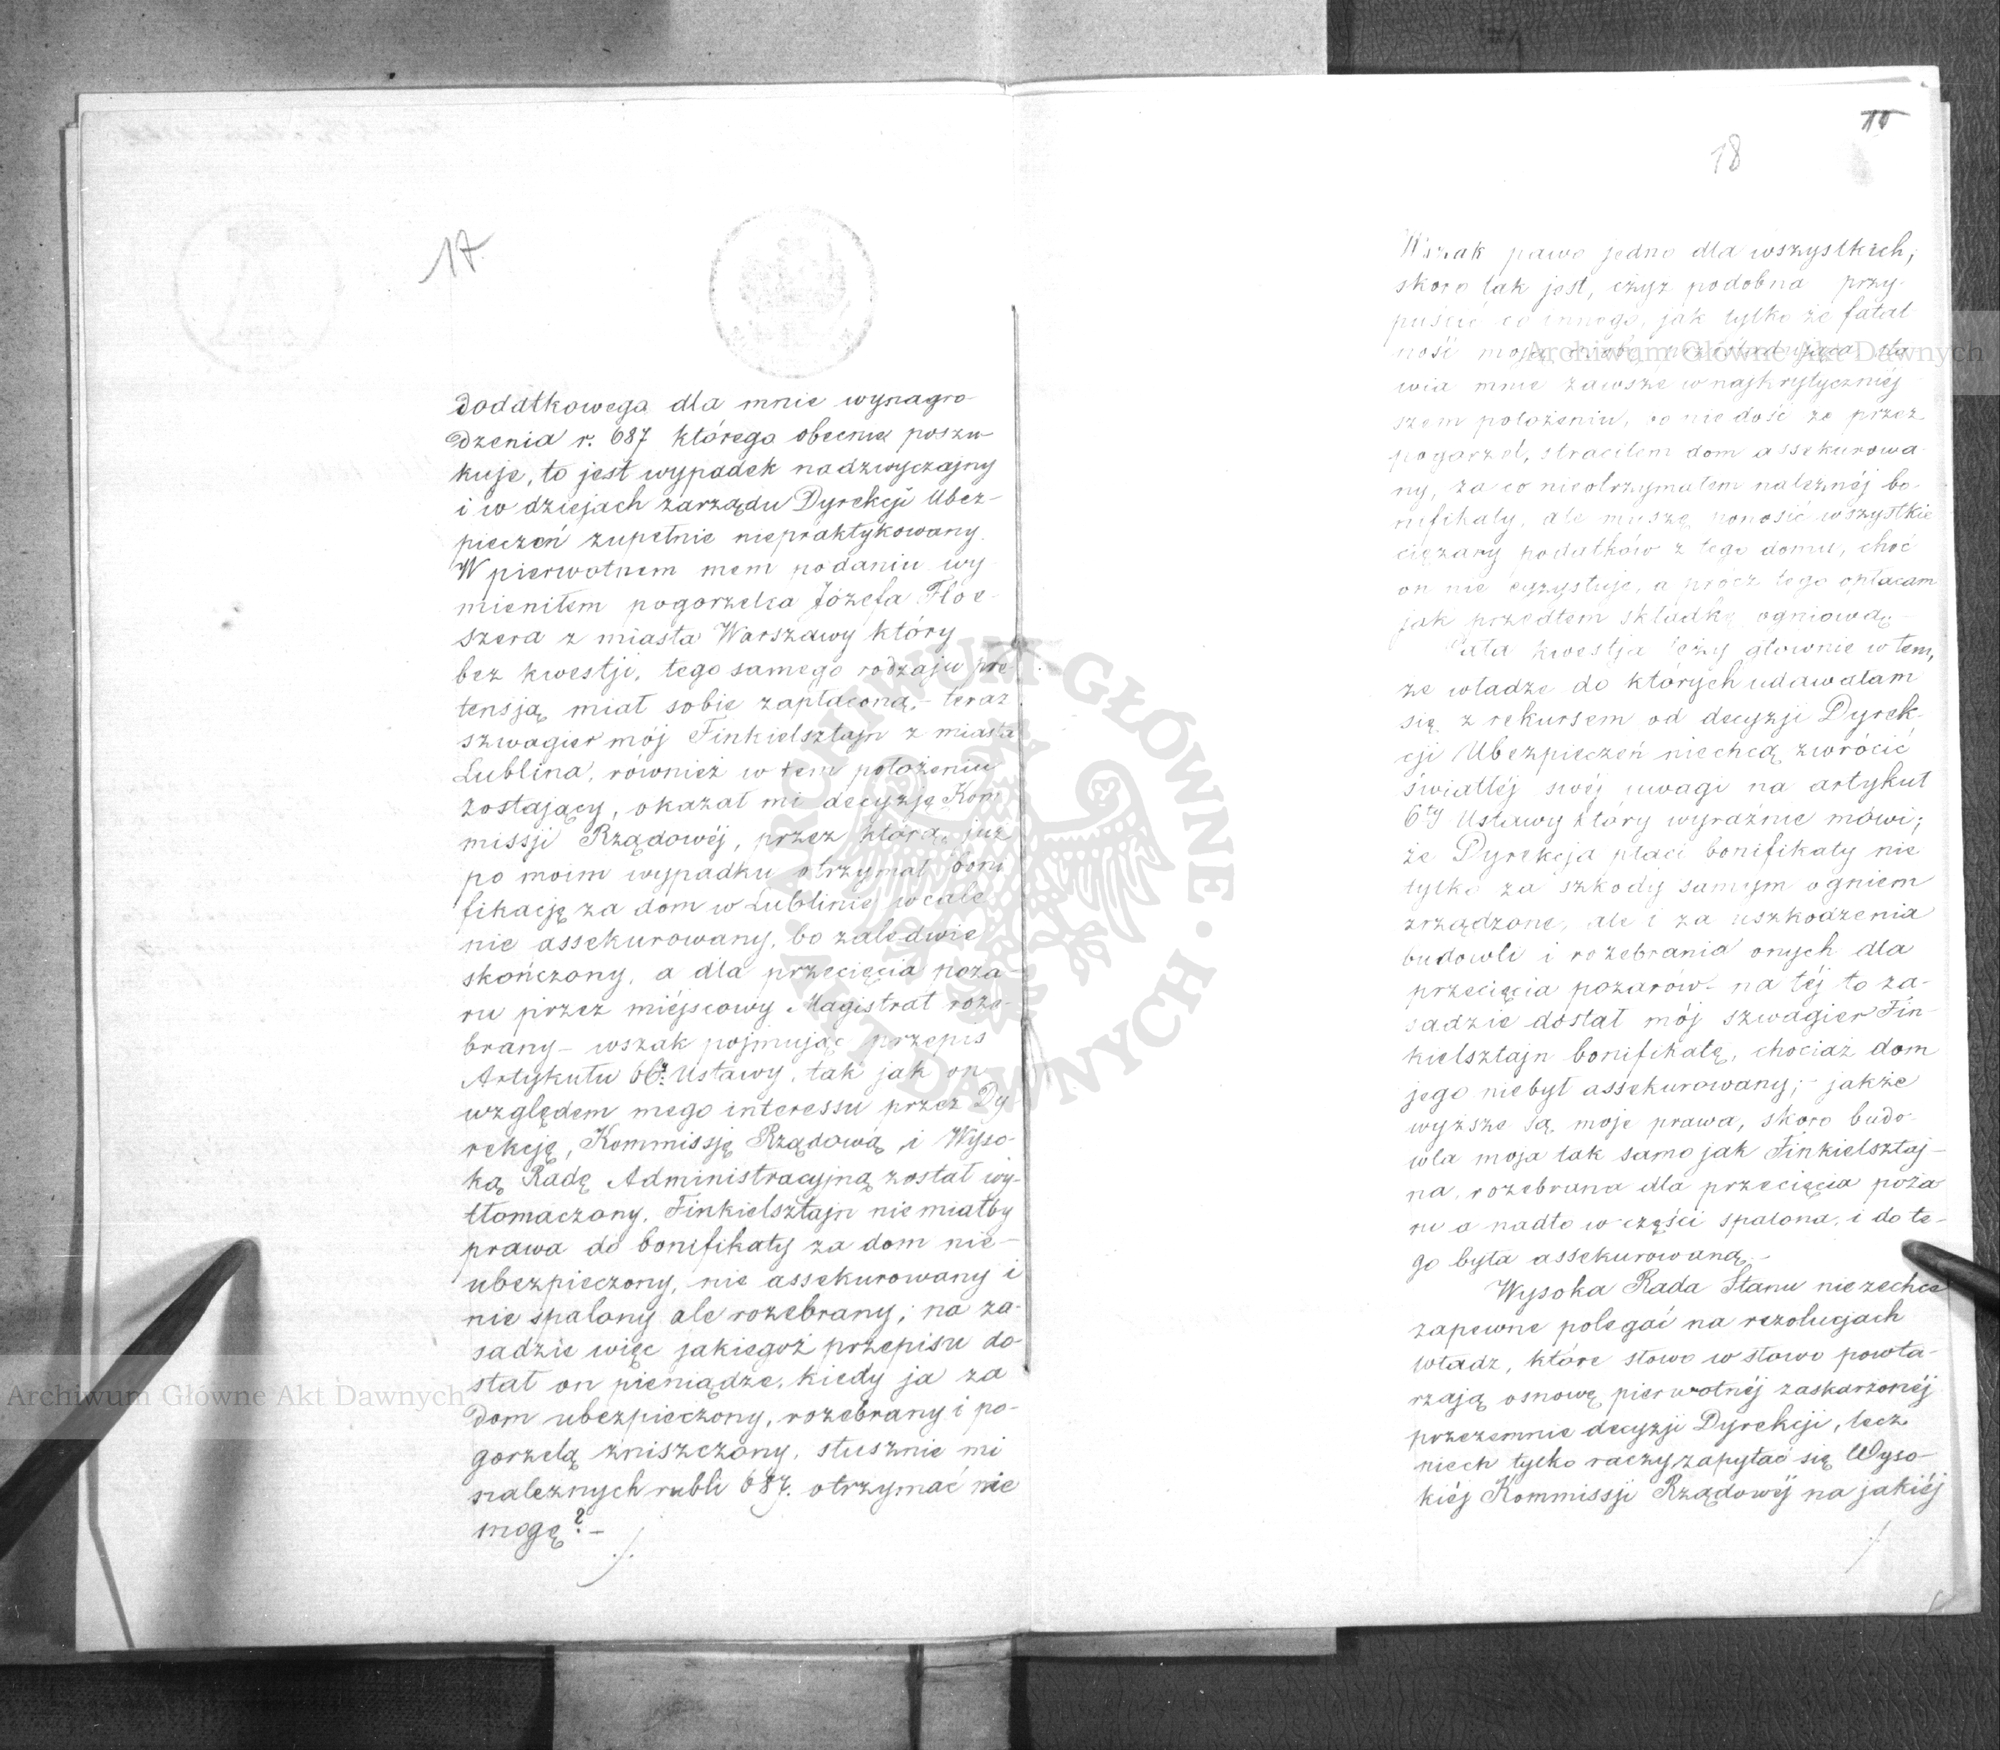 17.
Dodatkowego dla mnie wynagro-
dzenia r. 687 którego obecnie poszu-
kuje, to jest wypadek nadzwyczajny
i w dziejach zarządu Dyrekcji Ubez-
pieczeń zupełnie niepraktykowany.
W pierwotnem mem podaniu wy-
mieniłem pogorzelca Józefa Floe-
szera z miasta Warszawy który
bez kwestji, tego samego rodzaju pre-
tensją miał sobie zapłaconą,- teraz
szwagier mój Finkielsztajn z miasta
Lublina, również w tem położeniu
zostający, okazał mi decyzję Kom
missji Rządowéj, przez którą już
po moim wypadku otrzymał boni
fikację za dom w Lublinie wcale
nie assekurowany, bo zaledwie
skończony, a dla przecięcia poża-
ru przez miéjscowy Magistrat roze-
brany – wszak pojmując przepis
Artykułu 6g. Ustawy, tak jak on
względem mego interessu przez Dy-
rekcję, Kommissję Rządową i Wyso-
ką Radę Administracyjną został wy-
tłomaczony, Finkielsztajn nie miałby
prawa do bonifikaty za dom nie-
ubezpieczony, nie assekurowany i
nie spalony ale rozebrany; na za-
sadzie więc jakiegoż przepisu do-
stał on pieniądze, kiedy ja za
dom ubezpieczony, rozebrany i po-
gorzelą zniszczony, słusznie mi
należnych rubli 687. otrzymać nie
mogę? –
./.
18
Wszak pawo jedno dla wszystkich,
skoro tak jest, czyż podobna przy-
puścić co innego, jak tylko że fatal
ność moją osobę prześladująca sta
wia mnie zawsze w najkrytyczniéj
szem położeniu, bo nie dość że przez
pogorzel, straciłem dom assekurowa-
ny, za co nieotrzymałem należnéj bo-
nifikaty, ale muszę ponosić wszystkie
ciężary podatków z tego domu, choć
on nie egzystuje, a prócz tego opłacam
jak przedtem składkę ogniową.-
Cała kwestja leży głównie w tem,
że władze do których udawałam
się z rekursem od decyzji Dyrek-
cji Ubezpieczeń niechcą zwrócić
światłéj swéj uwagi na artykuł
6ty Ustawy który wyraźnie mówi;
że Dyrekcja płaci bonifikaty nie
tylko za szkody samym ogniem
zrządzone, ale i za uszkodzenia
budowli i rozebrania onych dla
przecięcia pożarów – na téj to za-
sadzie dostał mój szwagier Fin-
kielsztajn bonifikatę, chociaż dom
jego niebył assekurowany; – jakże
wyższe są moje prawa, skoro budo-
wla moja tak samo jak Finkielsztaj-
na, rozebrana dla przecięcia poża
ru a nadto w części spalona, i do te-
go była assekurowaną.-
Wysoka Rada Stanu niezechce
zapewne polegać na rezolucjach
władz, które słowo w słowo powta-
rzają osnowę pierwotnéj zaskarżonéj
przezemnie decyzji Dyrekcji, lecz
niech tylko raczy zapytać się Wyso-
kiéj Kommissji Rządowéj na jakiéj
./.
ARCHIWUM GŁÓWNE · AKT DAWNYCH ·
Archiwum Główne Akt Dawnych
Archiwum Główne Akt Dawnych